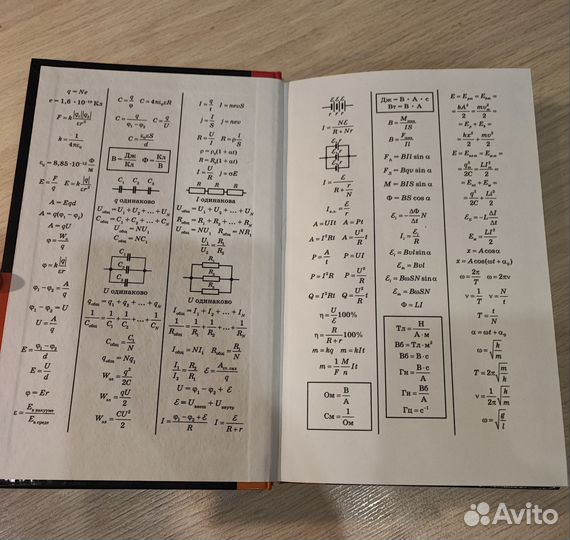 q = Ne
e = 1,6 · 10⁻¹⁹ Кл
F = k |q₁||q₂| / εr²
k = 1 / 4πε₀
ε₀ = 8,85 · 10⁻¹² Ф/м
E = F/q   E = k |q| / εr²
A = Eqd
A = q(φ₁ − φ₂)
A = qU
φ = Wₚ/q
φ = k |q| / εr
φ₁ − φ₂ = A/q
φ₁ − φ₂ = U
U = A/q
E = (φ₁ − φ₂)/d
E = U/d
φ = Er
ε = E в вакууме / E в среде
C = q/φ   C = 4πε₀εR
C = q/(φ₁ − φ₂)   C = q/U
C = ε₀εS / d
В = Дж/Кл   Ф = Кл/В
C₁ C₂ C₃
q одинаково
Uобщ = U₁ + U₂ + ... + Uₙ
Uобщ = NU₁
C₁
C₂
C₃
U одинаково
qобщ = q₁ + q₂ + ... + qₙ
Cобщ = C₁/N
q = Nq₁
Wэл = q²/2C
Wэл = qU/2
Wэл = CU²/2
I = q/t   I = nevS
j = I/S   j = nev
I = U/R   R = ρ l/S
ρ = ρ₀(1 + αt)
R = R₀(1 + αt)
I = U/R   j = σE
R R R
I одинаково
Uобщ = U₁ + U₂ + ... + Uₙ
Rобщ = R₁ + R₂ + ... + Rₙ
Uобщ = NU₁   Rобщ = NR₁
U₁/U₂ = R₁/R₂
R₁
R₂
R₃
U одинаково
Iобщ = I₁ + I₂ + ... + Iₙ
1/Rобщ = 1/R₁ + 1/R₂ + ... + 1/Rₙ
Iобщ = NI₁   Rобщ = R₁/N
I₁/I₂ = R₂/R₁   ℰ = Aст.сил/q
U = φ₁ − φ₂ + ℰ
ℰ = Uвнеш + Uвнутр
I = (φ₁ − φ₂ + ℰ)/R   I = ℰ/(R + r)
ℰ ℰ ℰ
r r r
I = Nℰ/(R + Nr)
I = ℰ/(R + r/N)
Iк.з. = ℰ/r
A = UIt   A = Pt
A = I²Rt   A = U²/R t
P = A/t   P = UI
P = I²R   P = U²/R
Q = I²Rt   Q = U²/R t
η = U/ℰ 100%
η = R/(R + r) 100%
m = kq   m = kIt
m = 1/F M/n It
Ом = В/А
См = 1/Ом
Дж = В · А · с
Вт = В · А
B = Mmax/IS
B = Fmax/Il
Fᴀ = BIl sin α
Fл = Bqυ sin α
M = BIS sin α
Φ = BS cos α
ℰᵢ = ΔΦ/Δt N
Iᵢ = ℰᵢ/R
ℰᵢ = Bvl sin α
ℰₘ = Bvl
ℰᵢ = BωSN sin α
ℰₘ = BωSN
Φ = LI
Тл = Н/(А · м)
Вб = Тл · м²
Вб = В · с
Гн = В · с/А
Гн = Вб/А
Гц = с⁻¹
x = A cos α
x = A cos(ωt + α₀)
ω = 2π/T   ω = 2πν
ν = 1/T   ν = N/t
T = t/N
α = ωt + α₀
ω = √(k/m)
T = 2π√(m/k)
ν = 1/2π √(k/m)
ω = √(g/l)
Avito